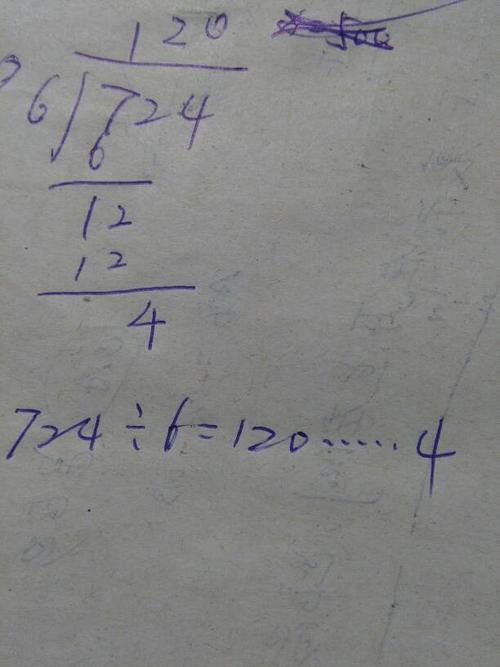 120
6)724
6
12
12
4
724÷6=120……4